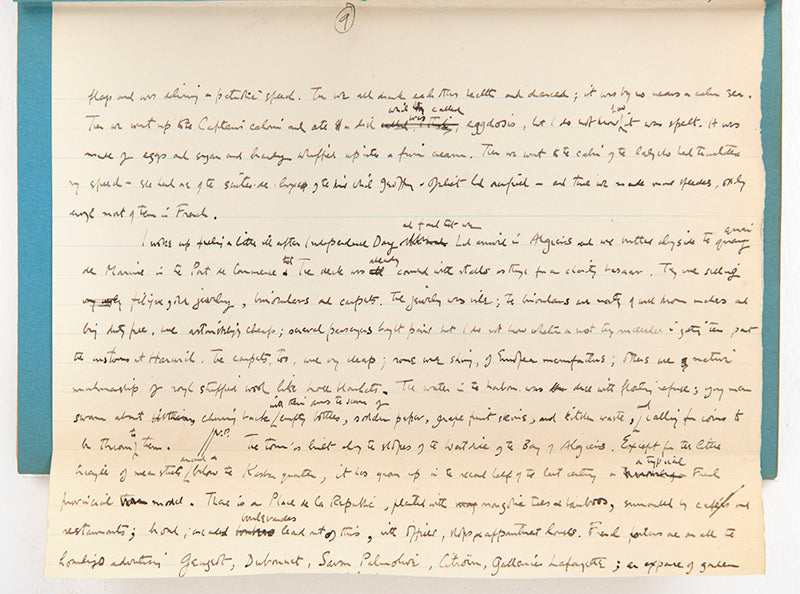 9
flags and was driving a patriotic speed. Then we all drank each others health and danced; it was by no means a calm sea.
Then we went up to the Captain's cabin and ate a dish which they called, eggdosis, but I do not know how it was spelt. It was
made of eggs and sugar and brandy whipped up into a firm cream. Then we went to the cabin of the lady who had translated
my speech – she had one of the suites-de-luxe of the kind which Geoffrey – had occupied – and there we made more speeches, oddly
enough most of them in French.
I woke up feeling a little ill after Independence Day and found that we had arrived in Algiers and were berthed alongside the quai
de Marine in the Port de Commerce & that The deck was already covered with stalls as though for a charity bazaar. They were selling
filigree gold jewelry, binoculars and carpets. The jewelry was vile; the binoculars were mostly of well known makes and
being duty free, were astonishingly cheap; several passengers bought pairs but I do not know whether or not they succeeded in getting them past
the customs at Harwich. The carpets, too, were very cheap; some were saxony, of European manufacture; others are of native
workmanship of rough stuffed wool like horse blankets. The water in the harbour was dense with floating refuse; young men
swam about clearing back with their arms the scum of empty bottles, sodden paper, grape fruit skins, and kitchen waste, and calling for coins to
be thrown to them. N.P. The town is built along the slopes of the West side of the Bay of Algiers. Except for the little
triangle of mean streets around & below the Kasbar quarter, it has grown up in the second half of the last century on a typical French
provincial model. There is a Place de la Republic, planted with mangrove trees & bamboos, surrounded by cafés and
restaurants; broad, arcaded boulevardes lead out of this, with offices, shops & appartment houses. French posters are on all the
hoardings advertising Peugeot, Dubonnet, Savon Palmolive, Citroën, Galleries Lafayette; an expanse of garden